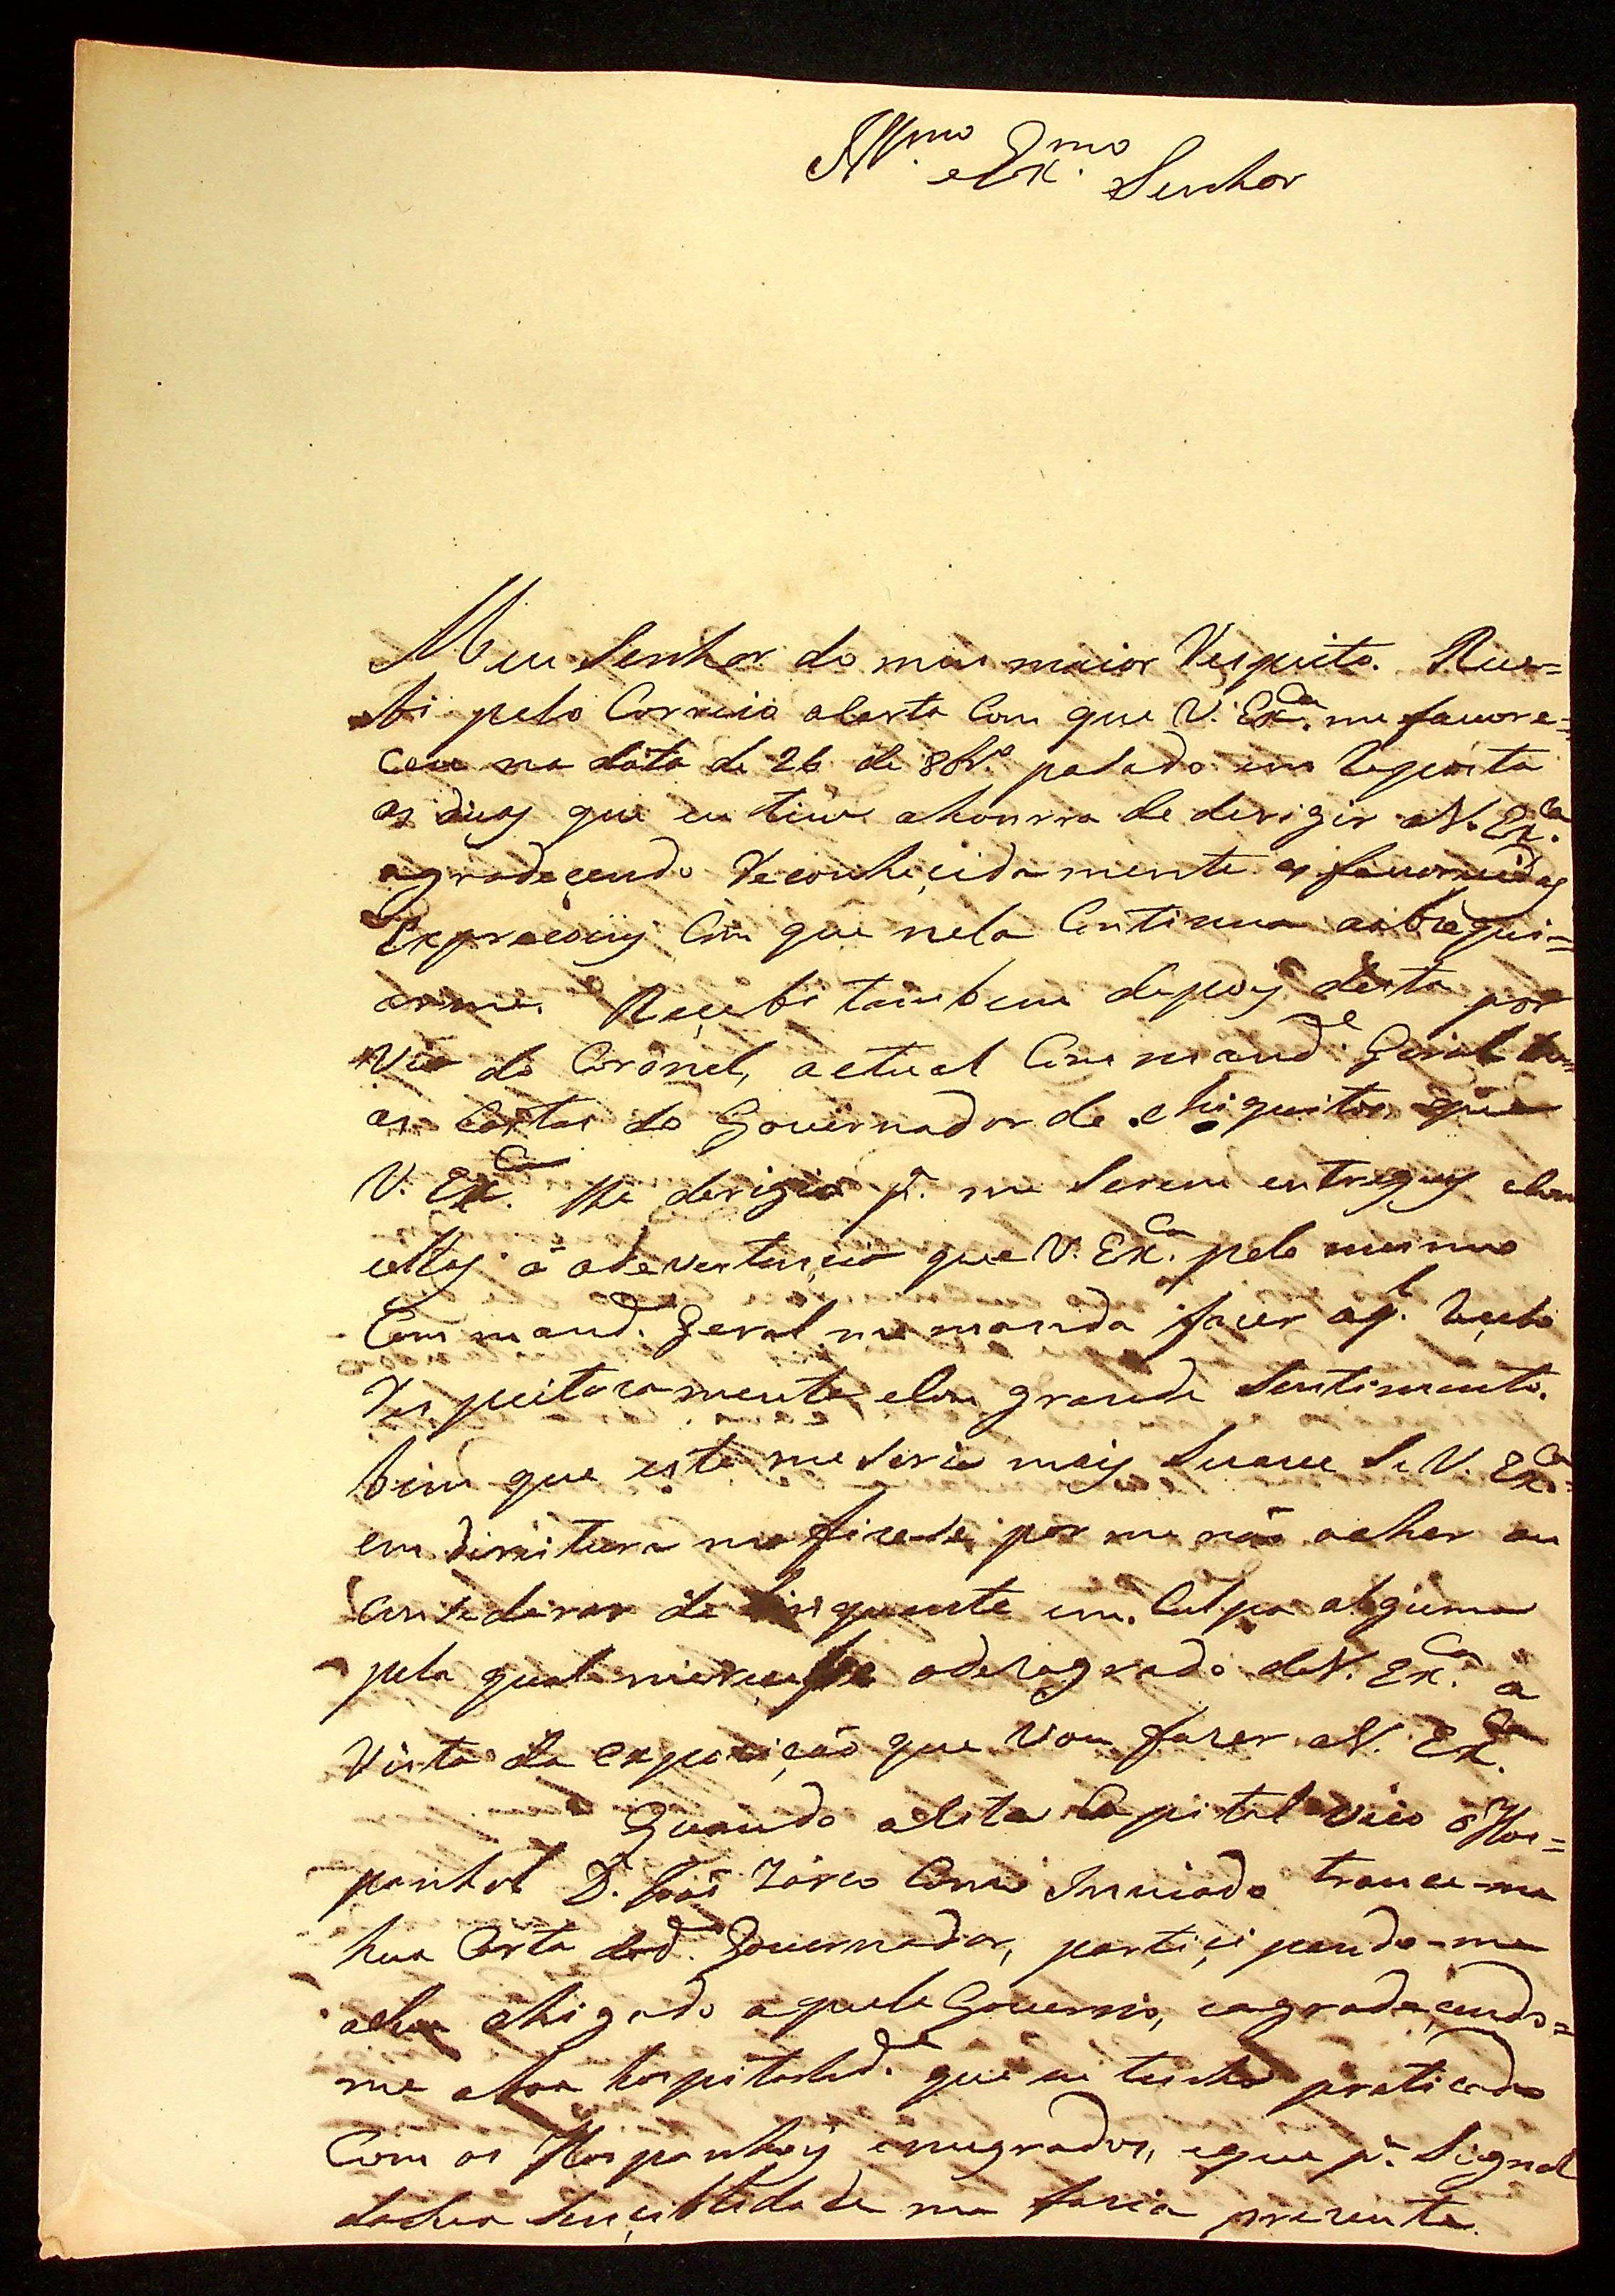 Ill.mo e Ex.mo Senhor
Meu Senhor do meu maior Respeito. Rece=
bi pelo Correio a Carta com que V. Ex.ca me favore=
ceu na data de 26 de 8br.o pasado em resposta
as duas que eu tive a honrra de derigir a V. Ex.ca
agradeçendo reconheçidamente as favorecidas
Expreçoiz com que nela Continua a obzequi=
arme. Reçebi tambem depois desta por
via do Coronel, actual Command.e Geral
as Cartas do Governador de Chiquitos que
V. Ex.ca lhe derigio p.a me serem entregues e com
ellas a adevertençia que V. Ex.ca pelo mesmo
Command.e Geral me manda fazer a q.l reçebi
Respeitozamente e com grande Sentimento.
bem que este me seria mais Suave Se V. Ex.ca
em direitura me fizese por me não achar ou
Conssederar delinquente em Culpa alguma
pela qual mereçese o dezagrado de V. Ex.ca á
Vista da expozição que vou fazer a V. Ex.ca
Quando a esta Capital veio o Hes=
panhol D. João Zarco Como Inviado trouce-me
hua Carta do d.o Governador, partiçipando-me
a Sua chegada aquele Governo, e agradeçendo=
me a boa hospitalid.e que eu tenho praticado
Com os Hespanhoiz emegrados, e que p.a Signal
da Sua Sençiblidade me fazia prezente